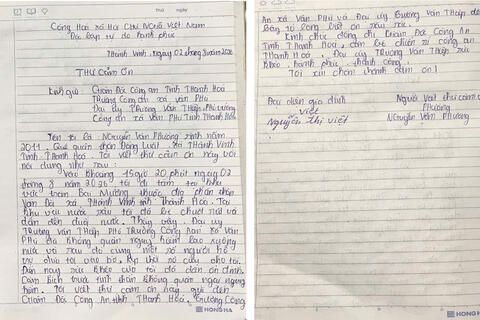 Thứ ngày
Cộng Hoà xã Hội Chủ Nghĩa Việt Nam
Độc lập tự do hạnh phúc
Thành Vinh, ngày 02 tháng 8 năm 2026
THƯ CẢM ƠN
Kính gửi: Giám Đốc Công an Tỉnh Thanh Hoá
Trưởng Công an xã Vạn Phú
Đại uý Trương Văn Thiệp, Phó trưởng
Công an xã Vạn Phú Tỉnh Thanh Hoá
Tên tôi là Nguyễn Văn Phương sinh năm
2011. Quê quán thôn xã Thành Vinh
Tỉnh Thanh Hoá. Tôi viết thư cảm ơn này với
nội dung như sau:
Vào khoảng 15 giờ 20 phút ngày 02
tháng 8 năm 2026 tôi đi tắm tại khu
vực thuộc địa phận thôn
xã Thành Vinh tỉnh Thanh Hoá. Tại
khu vực nước sâu tôi đã bị
dần đuối nước. Thấy vậy Đại uý
Trương Văn Thiệp Phó Trưởng Công An xã Vạn
Phú đã không quản nguy hiểm lao xuống
và sau đó cùng một số người hỗ
trợ đưa tôi vào bờ, kịp thời sơ cứu cho tôi.
Đến nay sức khoẻ của tôi đã dần ổn định.
Cảm kích trước tinh thần không quản ngại nguy
hiểm. Tôi viết thư cảm ơn này gửi đến
Giám Đốc Công an tỉnh Thanh Hoá, Trưởng Công
HONG HA
An xã Vạn Phú và Đại uý Trương Văn Thiệp đã
lòng biết ơn sâu sắc.
Kính chúc đồng chí Giám Đốc Công An
Tỉnh Thanh Hoá, cán bộ chiến sĩ công an
Thanh Hoá, Đại uý Trương Văn Thiệp sức
khoẻ, hạnh phúc, thành công.
Tôi xin chân thành cảm ơn!
Đại diện gia đình Người viết thư cảm ơn
Việt Phương
Nguyễn Thị Việt Nguyễn Văn Phương
HONG HA